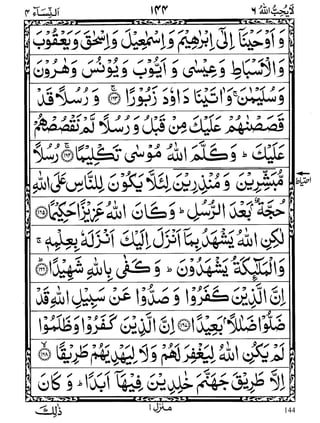 لَا يُحِبُّ اللهُ ٦ ١٤٤ اَلنِّسَآء ٤
وَاَوْحَيْنَاۤ اِلٰۤى اِبْرٰهِيْمَ وَاِسْمٰعِيْلَ وَاِسْحٰقَ وَيَعْقُوْبَ
وَالْاَسْبَاطِ وَعِيْسٰى وَاَيُّوْبَ وَيُوْنُسَ وَهٰرُوْنَ
وَسُلَيْمٰنَ ۚ وَاٰتَيْنَا دَاوٗدَ زَبُوْرًا ﴿١٦٣﴾ وَرُسُلًا قَدْ
قَصَصْنٰهُمْ عَلَيْكَ مِنْ قَبْلُ وَرُسُلًا لَّمْ نَقْصُصْهُمْ
عَلَيْكَ ؕ وَكَلَّمَ اللهُ مُوْسٰى تَكْلِيْمًا ﴿١٦٤﴾ رُسُلًا
مُّبَشِّرِيْنَ وَمُنْذِرِيْنَ لِئَلَّا يَكُوْنَ لِلنَّاسِ عَلَى اللهِ
حُجَّةٌۢ بَعْدَ الرُّسُلِ ؕ وَكَانَ اللهُ عَزِيْزًا حَكِيْمًا ﴿١٦٥﴾
لٰكِنِ اللهُ يَشْهَدُ بِمَاۤ اَنْزَلَ اِلَيْكَ اَنْزَلَهٗ بِعِلْمِهٖ ۚ
وَالْمَلٰٓئِكَةُ يَشْهَدُوْنَ ؕ وَكَفٰى بِاللهِ شَهِيْدًا ﴿١٦٦﴾
اِنَّ الَّذِيْنَ كَفَرُوْا وَصَدُّوْا عَنْ سَبِيْلِ اللهِ قَدْ
ضَلُّوْا ضَلٰلًۢا بَعِيْدًا ﴿١٦٧﴾ اِنَّ الَّذِيْنَ كَفَرُوْا وَظَلَمُوْا
لَمْ يَكُنِ اللهُ لِيَغْفِرَ لَهُمْ وَلَا لِيَهْدِيَهُمْ طَرِيْقًا ﴿١٦٨﴾
اِلَّا طَرِيْقَ جَهَنَّمَ خٰلِدِيْنَ فِيْهَاۤ اَبَدًا ؕ وَكَانَ
ذٰلِكَ منزل ١ 144